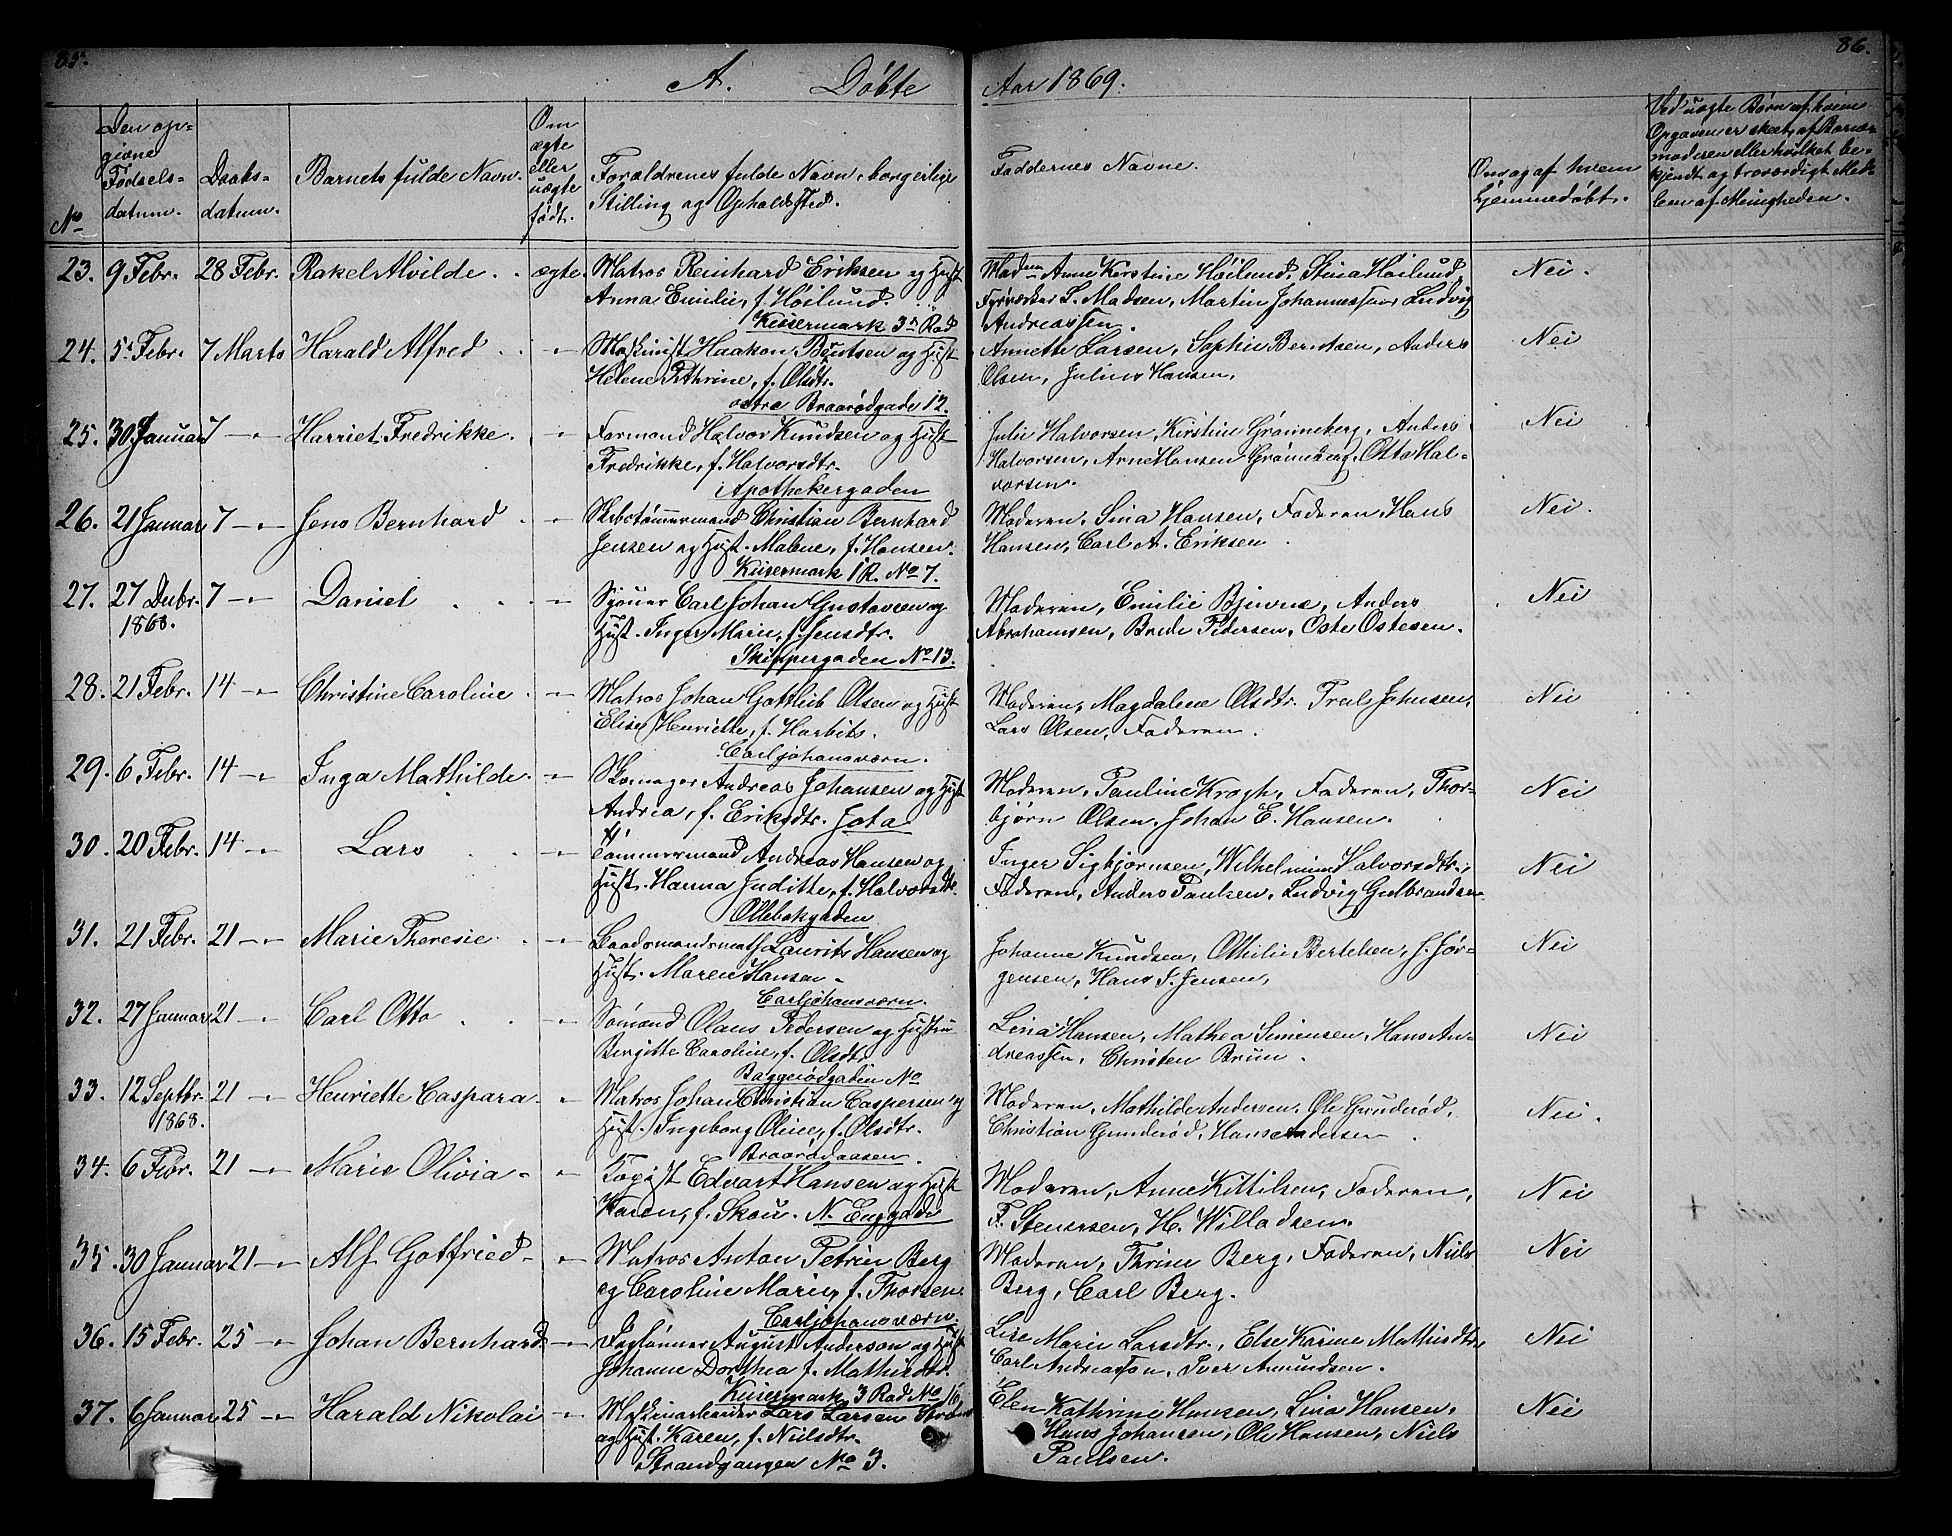 85.
A. Døbte
No
Den op-
givne
Fødsels-
datum.
Daabs-
datum.
Barnets fulde Navn.
Om
ægte
eller
uægte
født.
Forældrenes fulde Navn, borgerlige
Stilling og Opholdsted.
23. 9 Febr. 28 Febr. Rakel Alvilde. ægte. Matros Reinhard Eriksen og Hust
Anna Emilie, f. Høilund.
Kiisermark 3die Rad
24. 5 Febr. 7 Marts Harald Alfred - Maskinist Haakon Berntsen og Hust
Helene Kathrine, f. Olsdtr.
østre Braarødgade 12.
25. 30 Januar 7 - Harriet Fredrikke. - Formand Halvor Knudsen og Hust
Fredrikke, f. Halvorsdtr.
Apothekergaden
26. 21 Januar 7 - Jens Bernhard - Skibstømmermand Christian Bernhard
Jensen og Hust. Malene, f. Hansen.
Kiisermark 1 R. No 7.
27. 27 Decbr. 7 - Daniel - Sjouer Carl Johan Gustavsen og
1868. Hust. Inger Marie, f. Jensdtr.
Skippergaden No 13.
28. 21 Febr. 14 - Christine Caroline. - Matros Johan Gottlieb Olsen og Hust
Elise Henriette, f. Harbits.
Carljohansværn.
29. 6 Febr. 14 - Inga Mathilde. - Skomager Andreas Johansen og Hust
Andrea, f. Eriksdtr. Jota
30. 20 Febr. 14 - Lars - Tømmermand Andreas Hansen og
Hust. Hanna Juditte, f. Halvorsdtr.
Ollebakgaden
31. 21 Febr. 21 - Marie Theresie - Baadsmandsmath Laurits Hansen og
Hust. Maren Hansen
Carljohansværn.
32. 27 Januar 21 - Carl Otto - Sømand Olaus Pedersen og Hustru
Birgitte Caroline, f. Olsdtr.
Baggerødgaden No
33. 12 Septbr. 21 - Henriette Caspara - Matros Johan Christian Caspersen og
1868. Hust. Ingeborg Oline, f. Olsdtr.
Braarødaasen.
34. 6 Febr. 21 - Marie Olivia - Kopist Edvart Hansen og Hust
Karen, f. Skou. N. Enggade
35. 30 Januar 21 - Alf Gotfried - Matros Anton Petrin Berg
og Caroline Marie, f. Thorsen.
Carljohansværn.
36. 15 Febr. 25 - Johan Bernhard - Dagslønner August Anderson og Hust
Johanne Dorthea f. Mathisdtr.
Kiisermark 3 Rad No 16
37. 6 Januar 25 - Harald Nikolai - Maskinarbeider Lars Larsen
og Hust. Karen, f. Nielsdtr.
Strandgangen No 3.
86.
Aar 1869.
Faddernes Navne.
Om og af hvem
hjemmedøbt.
Ved uægte Børn af hvem
Opgaven er skeet, af Barne-
moderen eller hvilket be-
kjendt og troværdigt Med-
lem af Menigheden.
Madm Anne Kirstine Høilund, Stina Høilund, Nei.
Fyrverker L. Madsen, Martin Johannessen Ludvig
Andreassen.
Annette Larsen, Sophie Berntsen, Anders Nei
Olsen, Julius Hansen.
Julie Halvorsen, Kirstine Grønneberg, Anders Nei
Halvorsen, Arne Hansen Grønneberg, Otto Hal-
vorsen.
Moderen, Sina Hansen, Faderen, Hans Nei.
Hansen, Carl A. Eriksen
Moderen, Emilie Bjerne, Anders Nei
Abrahamsen, Brede Pedersen, Oste Ostesen.
Moderen, Magdalene Olsdtr. Johnsen, Nei
Lars Olsen, Faderen.
Moderen, Pauline Krogh, Faderen, Thor- Nei
bjørn Olsen, Johan E. Hansen.
Inger Sigbjørnsen, Wilhelmine Halvorsdtr., Nei
Faderen, Anders Paulsen, Ludvig Gulbrandsen
Johanne Knudsen, Othilie Bertelsen, J. Jør- Nei
gensen, Hans J. Jensen,
Lina Hansen, Mathea Simensen, Hans An- Nei
dreassen, Christen Bruun.
Moderen, Mathilde Andersen, Ole Gunderød, Nei.
Christian Gunderød, Hans Andersen
Moderen, Anne Kittilsen, Faderen, Nei
F. Stenersen, H. Willadsen.
Moderen, Thrine Berg, Faderen, Niels Nei
Berg, Carl Berg.
Lise Marie Larsdtr., Else Karine Mathisdtr. Nei
Carl Andreason, Iver Amundsen.
Elen Kathrine Hansen, Lina Hansen. Nei
Hans Johansen, Ole Hansen, Niels
Paulsen.